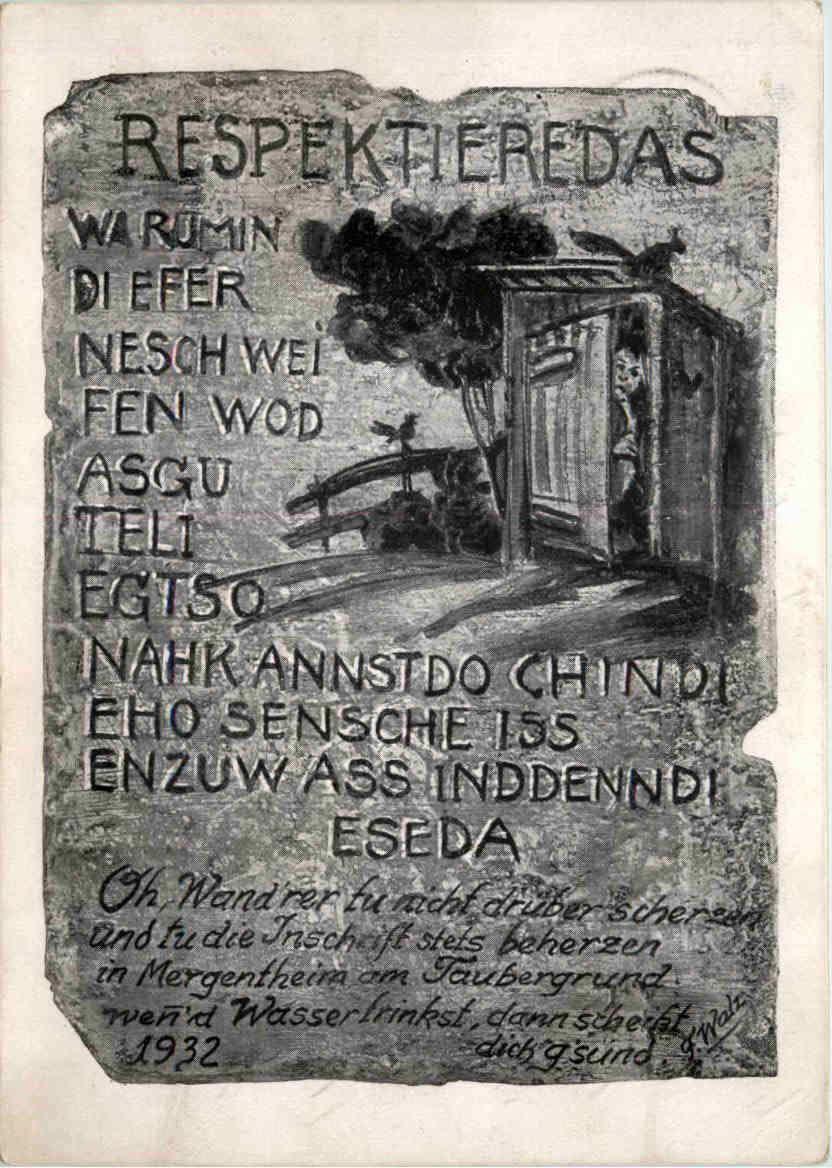 RESPEKTIEREDAS
WARUMIN
DI EFER
NESCH WEI
FEN WOD
ASGU
TELI
EGTSO
NAHK ANNSTDO CHINDI
EHO SENSCHE ISS
ENZUW ASS INDDENNDI
ESEDA
Oh, Wand'rer tu nicht drüber scherzen
und tu die Inschrift stets beherzen
in Mergentheim am Taubergrund.
wen̄'d Wasser trinkst, dann scheißt
1932 dich g'sund.
F. Walz